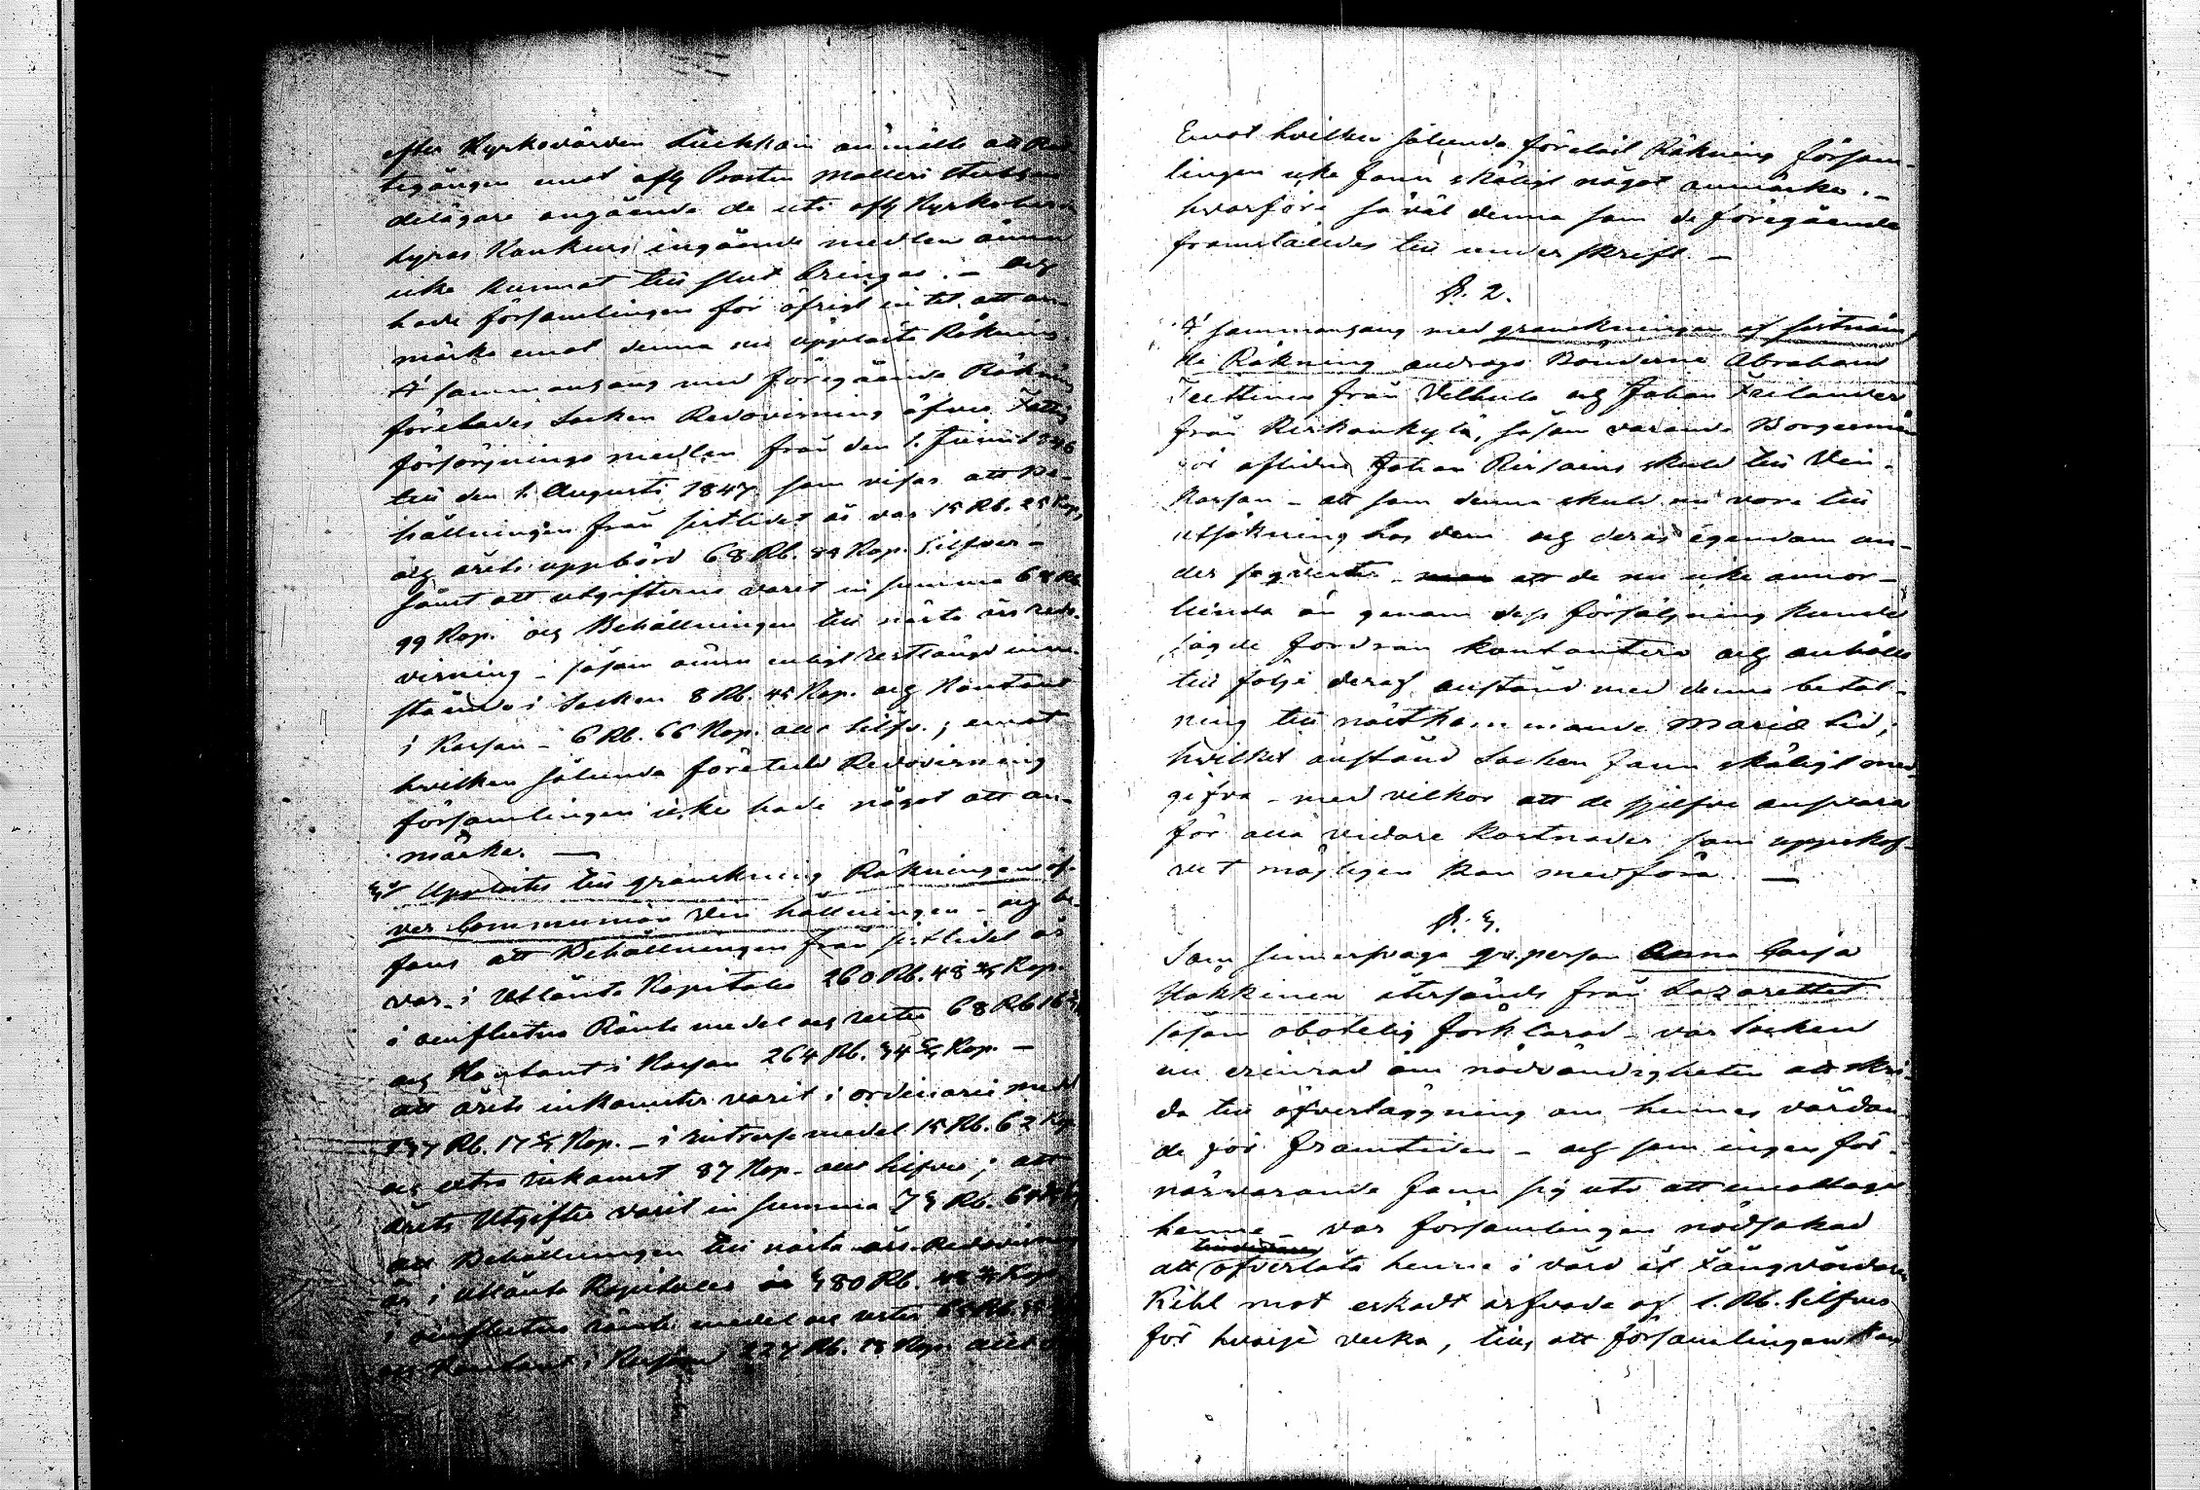 efter Kyrkovärden Luckkain anmälte att Rät-
tegången emot afl. Prosten Molleri Sterbhus
delägare angående de uti afl. Kyrkoherr
hyras Konkurs ingående medlen ännu
icke kunnat till slut bringas. – och
hade församlingen för öfrigt intet att an-
märka emot denna nu upplästa Räkning.
I sammanhang med föregående Räkning
företades Socken Redovisning öfver Fattig
försörjnings medlen från den 1. Junii 1846
till den 1. Augusti 1847. som visar att Be-
hållningen från sistlidet år var 15 Rb. 25 Kop,
och årets uppbörd 68 Rb. 84 Kop. Silfver –
samt att utgifterne varit in summa 68 Rb
99 Kop. och Behållningen till nästa års redo-
visning – såsom ännu enligt restlängd inne-
stående i Socken 8 Rb. 45 Kop. och Kontant
i Kassan – 6 Rb. 66 Kop. allt Silfv.; emot
hvilken sålunda företedd Redovisning
församlingen icke hade något att an-
märka. –
Upplästes till granskning Räkningen öf-
ver Communion Vin hållningen – och be-
fans att Behållningen från sistlidet år
var i Utlånta Kapitaler 260 Rb. 48 Kop.
i oinflutne Ränte medel och rester 68 Rb 16
och Kontant i Kassan 264 Rb. 34 Kop. –
att årets inkomster varit i ordinarie medel
Rb. 17 Kop. – i Intresse medel 15 Rb. 62 Kop
och extra inkomst 87 Kop. allt Silfver; att
årets Utgifter varit in summa 73 Rb.
att Behållningen till nästa års Redovisning
är i utlånta Kapitaler 380 Rb. Kop
i oinflutne ränte medel och rester
och Kontant i Kassan 227 Rb. Kop. allt
Emot hvilken sålunda företedd Räkning försam-
lingen icke fann skäligt något anmärka. –
hvarföre såväl denna som de föregående
framställdes till underskrift. –
§. 2.
I sammanhang med granskningen af sistnäm-
de Räkning androgo Bönderne Abraham
Teittinen från Veltule och Johan Frilander
från Kirkonkylä, såsom varande Borgesmän
för aflidne Johan Reisains skuld till Vin-
kassan – att som denna skuld nu vore till
utsökning hos dem och deras egendom un-
der seqvester – att de nu icke annor-
lunda än genom dess försäljning kunde
sagde fordran kontantera och anhöllo
till följe deraf anstånd med denna betal-
ning till nästkommande Mariæ tid;
hvilket anstånd Socken fann skäligt med-
gifva – med vilkor att de sjelfve ansvara
för alla vidare kostnader som uppskof-
vet möjligen kan medföra. –
§. 3.
Som sinnessvaga qv. person Anna Caisa
Hakkinen återsänds från Lazarettet
såsom obotelig förklarad – var Socken
nu erinrad om nödvändigheten att skri-
da till öfverläggning om hennes vårdan-
de för framtiden – och som ingen för
närvarande fann sig uti att emottaga
henne – var församlingen nödsakad
att öfverlåta henne i vård åt Fångvårdaren
Kihl mot erkadt arfvode af 1. Rb. Silfver
för hvarje vecka, tills att församlingen kan